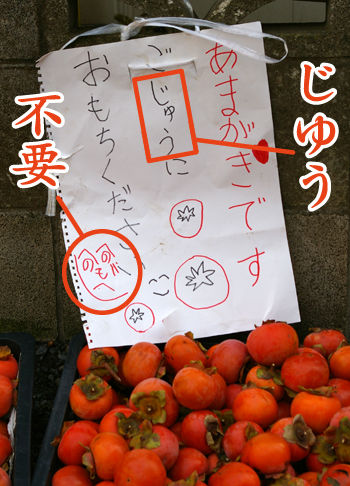 じゆう
あまがきです
ごじゅうに
おもちください
不要
へのへのもへ